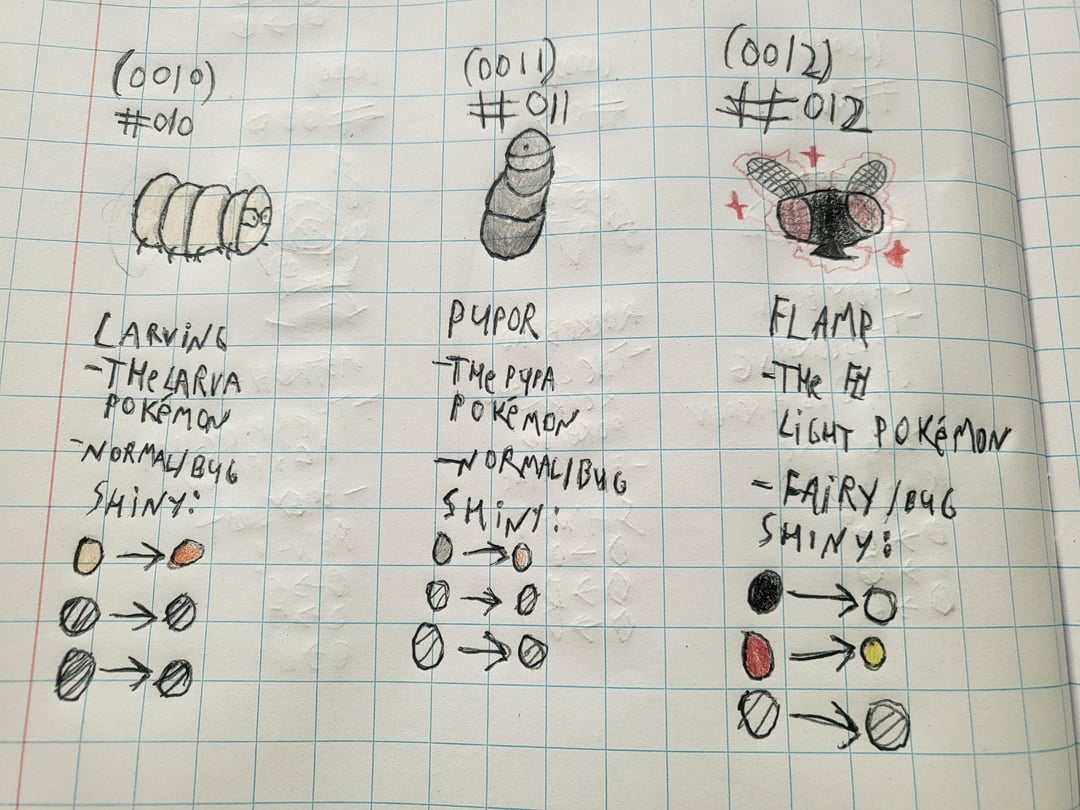 (0010)
#010
LARVING
-THE LARVA
POKéMON
-NORMAL/BUG
SHiNY:
(0011)
#011
PUPOR
-THE PUPA
POKéMON
-NORMAL/BUG
SHiNY:
(0012)
#012
FLAMP
-THE
LiGHT POKéMON
-FAiRY/BUG
SHiNY: